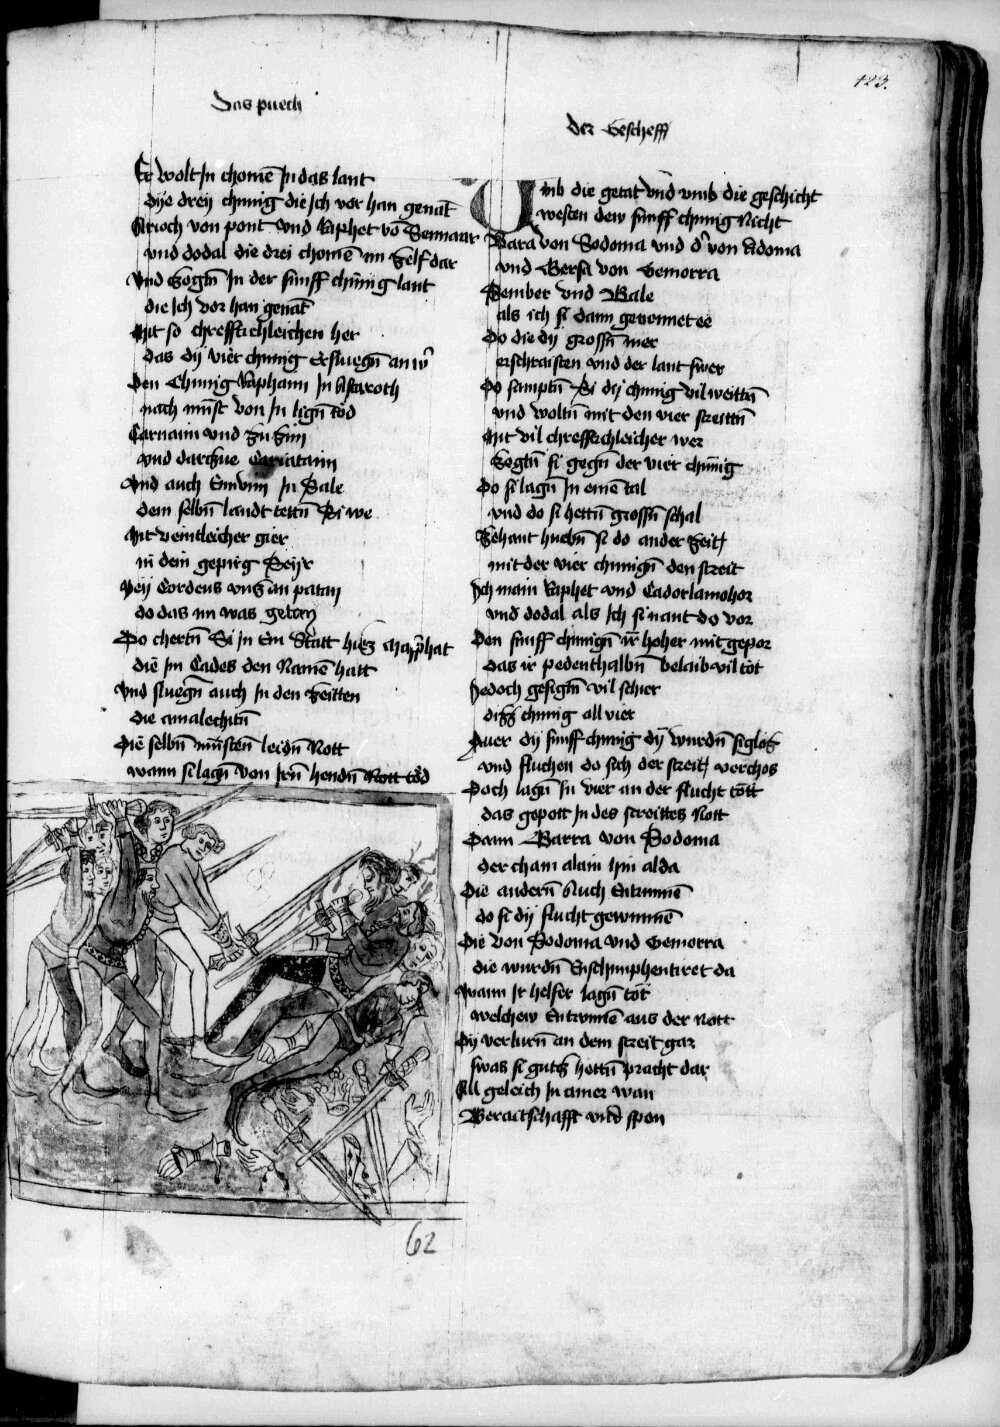 123.
Das puech
der Gescheff
Er wolt Jn chomē Jn das lant
dÿe dreÿ chunig die Jch vor han genāt
Arioch von pont vnd Raphet vō Sennaar
vnd dodal die drei chomē im Self dar
Vnd Zogtn̄ Jn der funff chunig lant
die Jch vor han genāt
Mit so chrefftichleichen her
das dÿ vier chunig Ersluegn̄ an wr̄
Den Chunig Raphaim Jn Astaroth
nach mūst von Jn lign̄ tod
Carnaim vnd Susim
vnd darczue Cariataim
Vnd auch Emvim Jn Sale
dem selbn̄ landt tettn̄ Si we
Mit veintleicher gier
in dem gepirg Seyr
peÿ Cordeus vnsz an patan
do das nn was getan
Do chertn̄ Si Jn Ein Statt hiesz
die im Cades den Namē hatt
Vnd sluegn̄ auch Jn den Zeitten
die amalechitn̄
Die selbn̄ mūsten leidn̄ Nott
wann si lagn̄ von Jrn̄ hendn̄ Nott tod
Vmb die getat vnd vmb die geschicht
westen dew funff chunig Nicht
Bara von Sodoma vnd dr̄ von Adoma
vnd Gersa von Gemorra
Sember vnd Bale
als ich si dann gevennet ee
Do die dÿ grossn̄ mer
erschraisten vnd der lant swer
Do samptn̄ Si dÿ chunig vil weittn̄
vnd woltn̄ mit den vier streittn̄
Mit vil chrefftichleicher wer
Zogtn̄ si gegn̄ der vier chunig
Do si lagn̄ Jn emē tal
vnd do si hettn̄ grossn̄ schal
Zehant huebn̄ si do ander Zeitt
mit der vier chunign̄ den streit
Jch main Raphet vnd Cadorlamohor
vnd dodal als Jch si nant do vor
Den funff chunign̄ ir hoher mit gepor
das ir pedenthalbn̄ belaib vil tot
Jedoch gesigtn̄ vil schier
disz chunig all vier
Auer dÿ funff chunig dÿ wurdn̄ siglos
vnd fluchen do sich der streitt verchos
Doch lagn̄ Jn vier an der flucht tott
das gepott Jn des streittes Nott
Dann Barra von Sodoma
der cham alain hin alda
Die andern̄ auch Entrunnē
do si dÿ flucht gewunnē
Die von Sodoma vnd Gemorra
die wurdn̄ Enschimphentiret da
wann Jr helfer lagn̄ tot
welchew Entrunnē aus der Nott
Dÿ verlurn̄ an dem streit gar
swas si gutz hettn̄ pracht dar
All geleich Jn ainer wan
Beraitschafft vnd spon
62